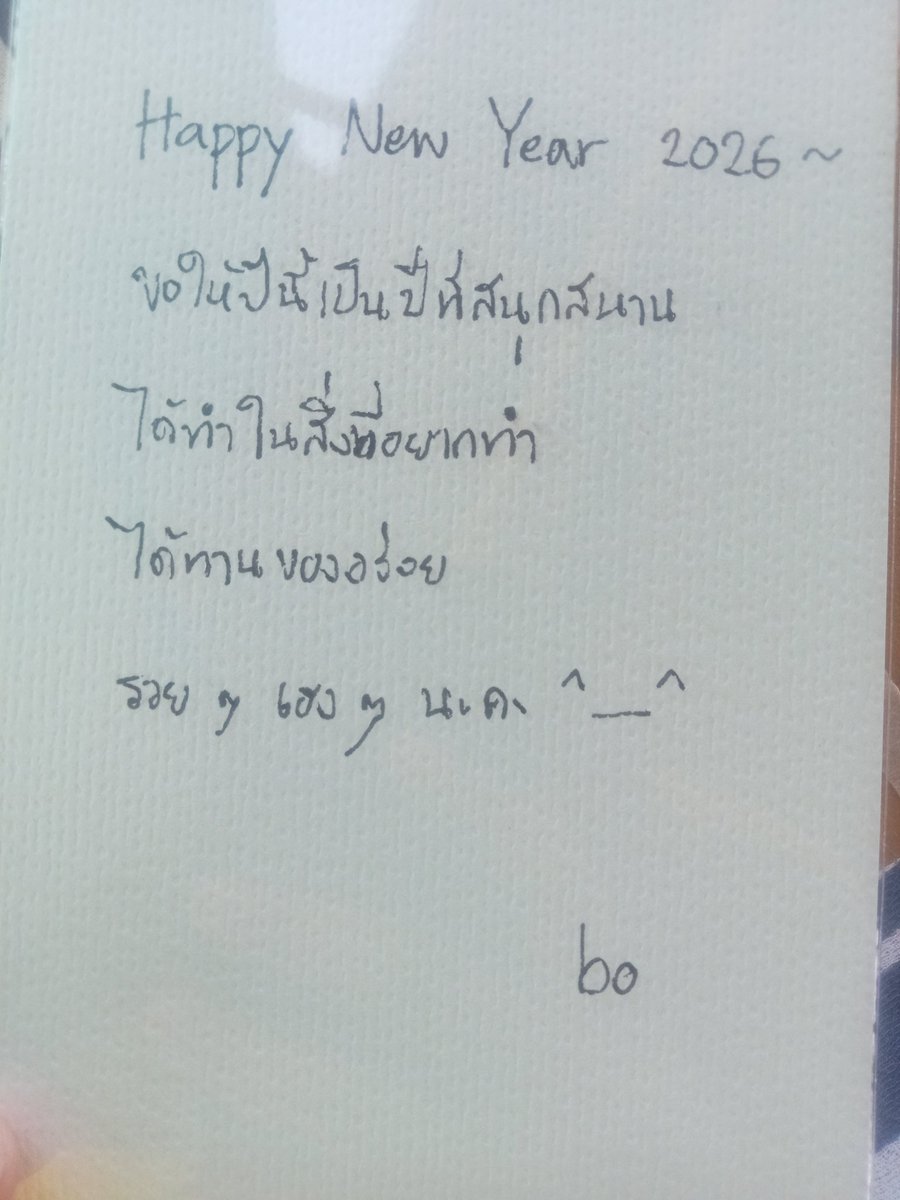 Happy New Year 2026 ~
ขอให้ปีนี้เป็นปีที่สนุกสนาน
ได้ทำในสิ่งที่อยากทำ
ได้ทานของอร่อย
รวย ๆ เฮง ๆ นะคะ ^__^
bo